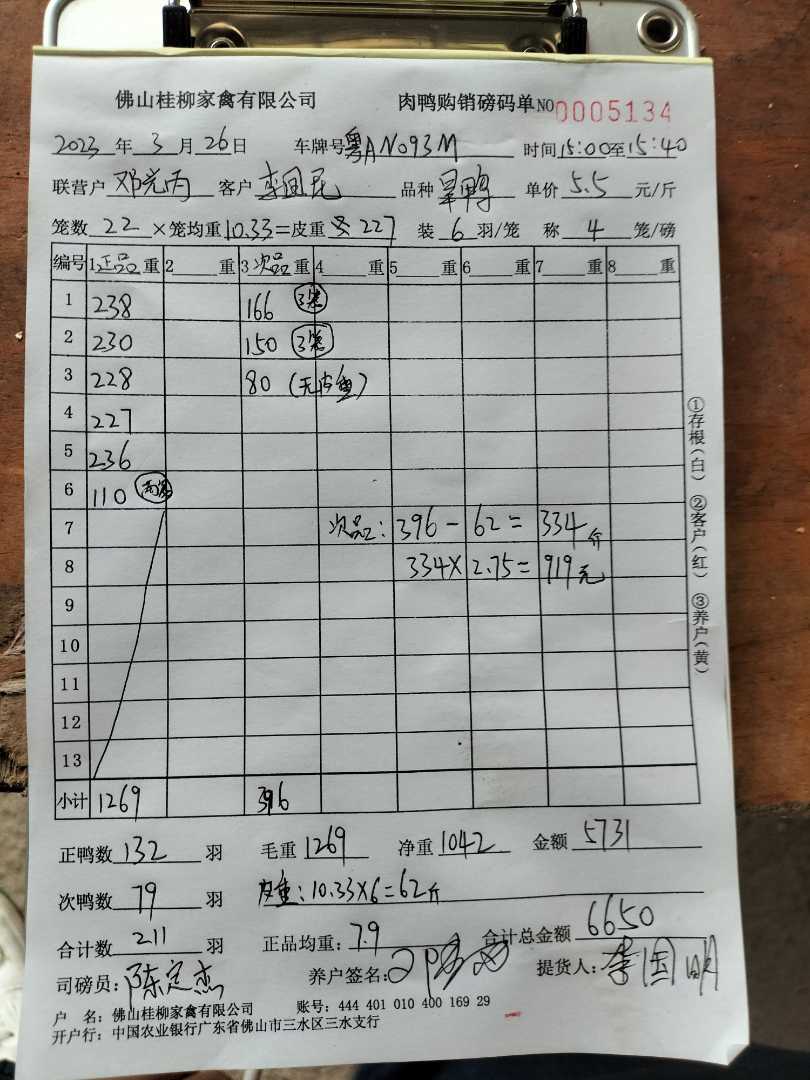 佛山桂柳家禽有限公司 肉鸭购销磅码单 NO 0005134
2023 年 3 月 26 日 车牌号 粤A N093M 时间 15:00 至 15:40
联营户 邓光丙 客户 李国 品种 单价 5.5 元/斤
笼数 22 ×笼均重 10.33 =皮重 227 装 6 羽/笼 称 4 笼/磅
编号 1 正品 重 2 重 3 次品 重 4 重 5 重 6 重 7 重 8 重
1 238 166 3笼
2 230 150 3笼
3 228 80 (无皮重)
4 227
5 236
6 110
7 次品: 396 - 62 = 334 斤
8 334 × 2.75 = 919 元
9
10
11
12
13
小计 1269 396
正鸭数 132 羽 毛重 1269 净重 1042 金额 5731
次鸭数 79 羽 皮重: 10.33×6=62斤
合计数 211 羽 正品均重: 7.9 合计总金额 6650
司磅员: 陈定杰 养户签名: 提货人: 李国明
户 名: 佛山桂柳家禽有限公司 账号: 444 401 010 400 169 29
开户行: 中国农业银行广东省佛山市三水区三水支行
①存根(白) ②客户(红) ③养户(黄)